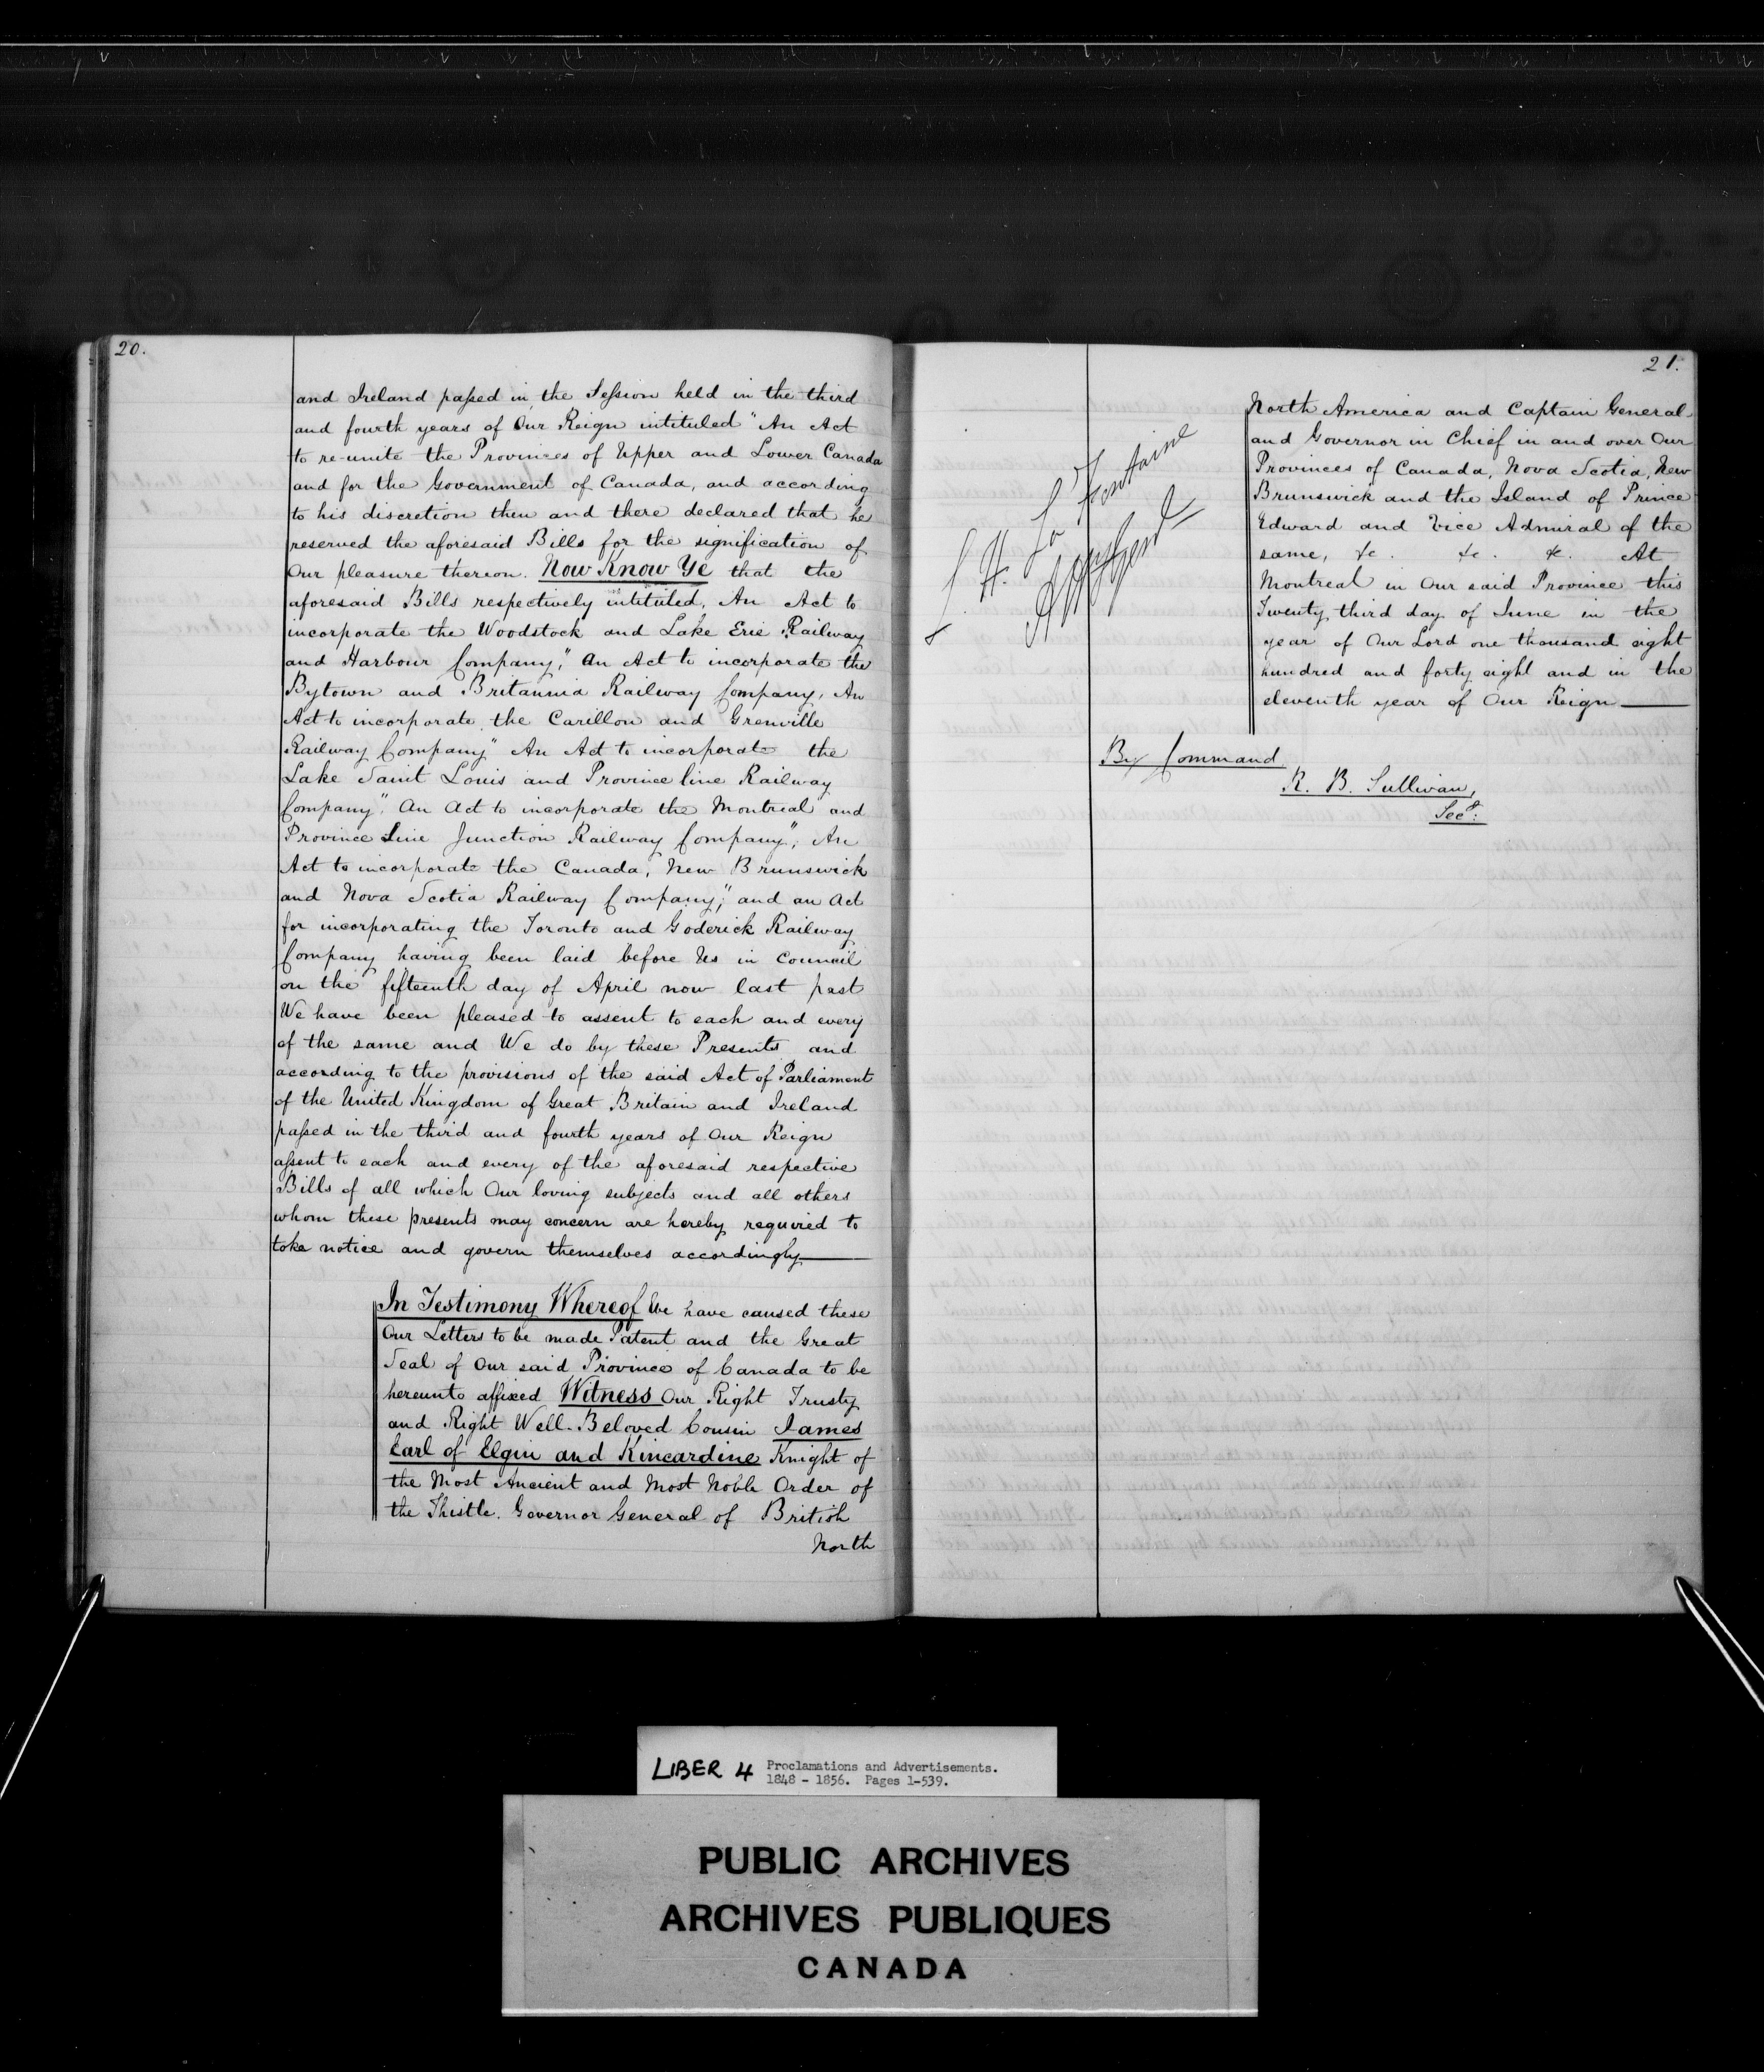 20.
and Ireland paſsed in the Seſsion held in the third
and fourth years of Our Reign intituled "An Act
to re-unite the Provinces of Upper and Lower Canada
and for the Government of Canada, and according
to his discretion then and there declared that he
reserved the aforesaid Bills for the signification of
Our pleasure thereon. Now Know Ye that the
aforesaid Bills respectively intituled, An Act to
incorporate the Woodstock and Lake Erie Railway
and Harbour Company," An Act to incorporate the
Bytown and Britannia Railway Company, An
Act to incorporate the Carillon and Grenville
Railway Company" An Act to incorporate the
Lake Saint Louis and Province line Railway
Company", An Act to incorporate the Montreal and
Province Line Junction Railway Company", An
Act to incorporate the Canada, New Brunswick
and Nova Scotia Railway Company;" and an Act
for incorporating the Toronto and Goderick Railway
Company having been laid before Us in Council
on the fifteenth day of April now last past
We have been pleased to assent to each and every
of the same and We do by these Presents and
according to the provisions of the said Act of Parliament
of the United Kingdom of Great Britain and Ireland
paſsed in the third and fourth years of Our Reign
aſsent to each and every of the aforesaid respective
Bills of all which Our loving subjects and all others
whom these presents may concern are hereby required to
take notice and govern themselves accordingly
In Testimony Whereof We have caused these
Our Letters to be made Patent and the Great
Seal of Our said Province of Canada to be
hereunto affixed Witness Our Right Trusty
and Right Well-Beloved Cousin James
Earl of Elgin and Kincardine Knight of
the Most Ancient and Most Noble Order of
the Thistle. Governor General of British
North
21.
North America and Captain General
and Governor in Chief in and over Our
Provinces of Canada, Nova Scotia, New
Brunswick and the Island of Prince
Edward and Vice Admiral of the
same, &c. &c. &c. At
Montreal in Our said Province this
Twenty third day of June in the
year of Our Lord one thousand eight
hundred and forty eight and in the
eleventh year of Our Reign
L. H. La Fontaine
Atty Genl
By Command
R. B. Sullivan,
Secy.
LIBER 4 Proclamations and Advertisements.
1848 - 1856. Pages 1-539.
PUBLIC ARCHIVES
ARCHIVES PUBLIQUES
CANADA